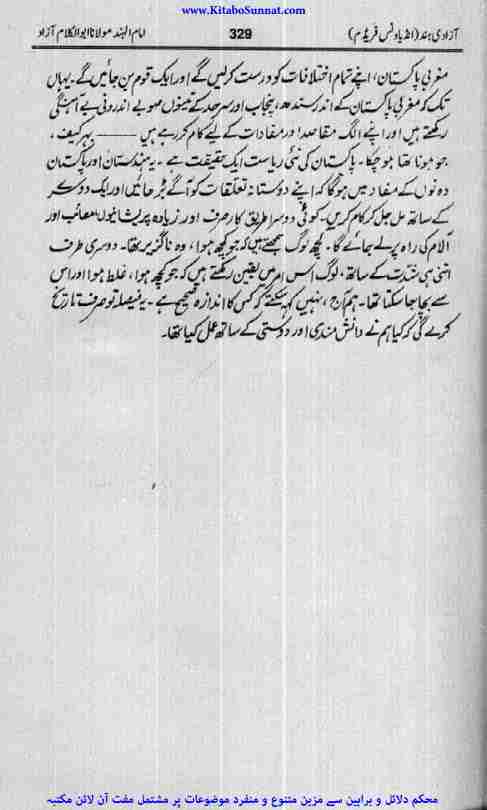 www.KitaboSunnat.com
آزادی ہند (انڈیا ونس فریڈم) 329 امام الہند مولانا ابوالکلام آزاد
مغربی پاکستان، اپنے تمام اختلافات کو درست کرلیں گے اور ایک قوم بن جائیں گے۔ یہاں
تک کو مغربی پاکستان کے اندر سندھ، پنجاب اور سرحد کے تینوں صوبے اندرونی بے آہنگی
رکھتے ہیں اور اپنے الگ مقاصد اور مفادات کے لیے کام کررہے ہیں ——— بہر کیف،
جو ہونا تھا ہو چکا۔ پاکستان کی نئی ریاست ایک حقیقت ہے۔ یہ ہندستان اور پاکستان
دونوں کے مفاد میں ہوگا کہ اپنے دوستانہ تعلقات کو آگے بڑھائیں اور ایک دوسرے
کے ساتھ مل جل کر کام کریں۔ کوئی دوسرا طریق کار صرف اور زیادہ پریشانیوں مصائب اور
آلام کی راہ پر لے جائے گا۔ کچھ لوگ سمجھتے ہیں کہ جو کچھ ہوا، وہ ناگزیر تھا۔ دوسری طرف
اتنی ہی شدت کے ساتھ، لوگ اس امر میں یقین رکھتے ہیں کہ جو کچھ ہوا، غلط ہوا اور اس
سے بچا جا سکتا تھا۔ ہم آج، نہیں کہہ سکتے کہ کس کا اندازہ صحیح ہے۔ یہ فیصلہ تو صرف تاریخ
کرے گی کہ کیا ہم نے دانش مندی اور درستی کے ساتھ عمل کیا تھا۔
محکم دلائل و براہین سے مزین متنوع و منفرد موضوعات پر مشتمل مفت آن لائن مکتبہ